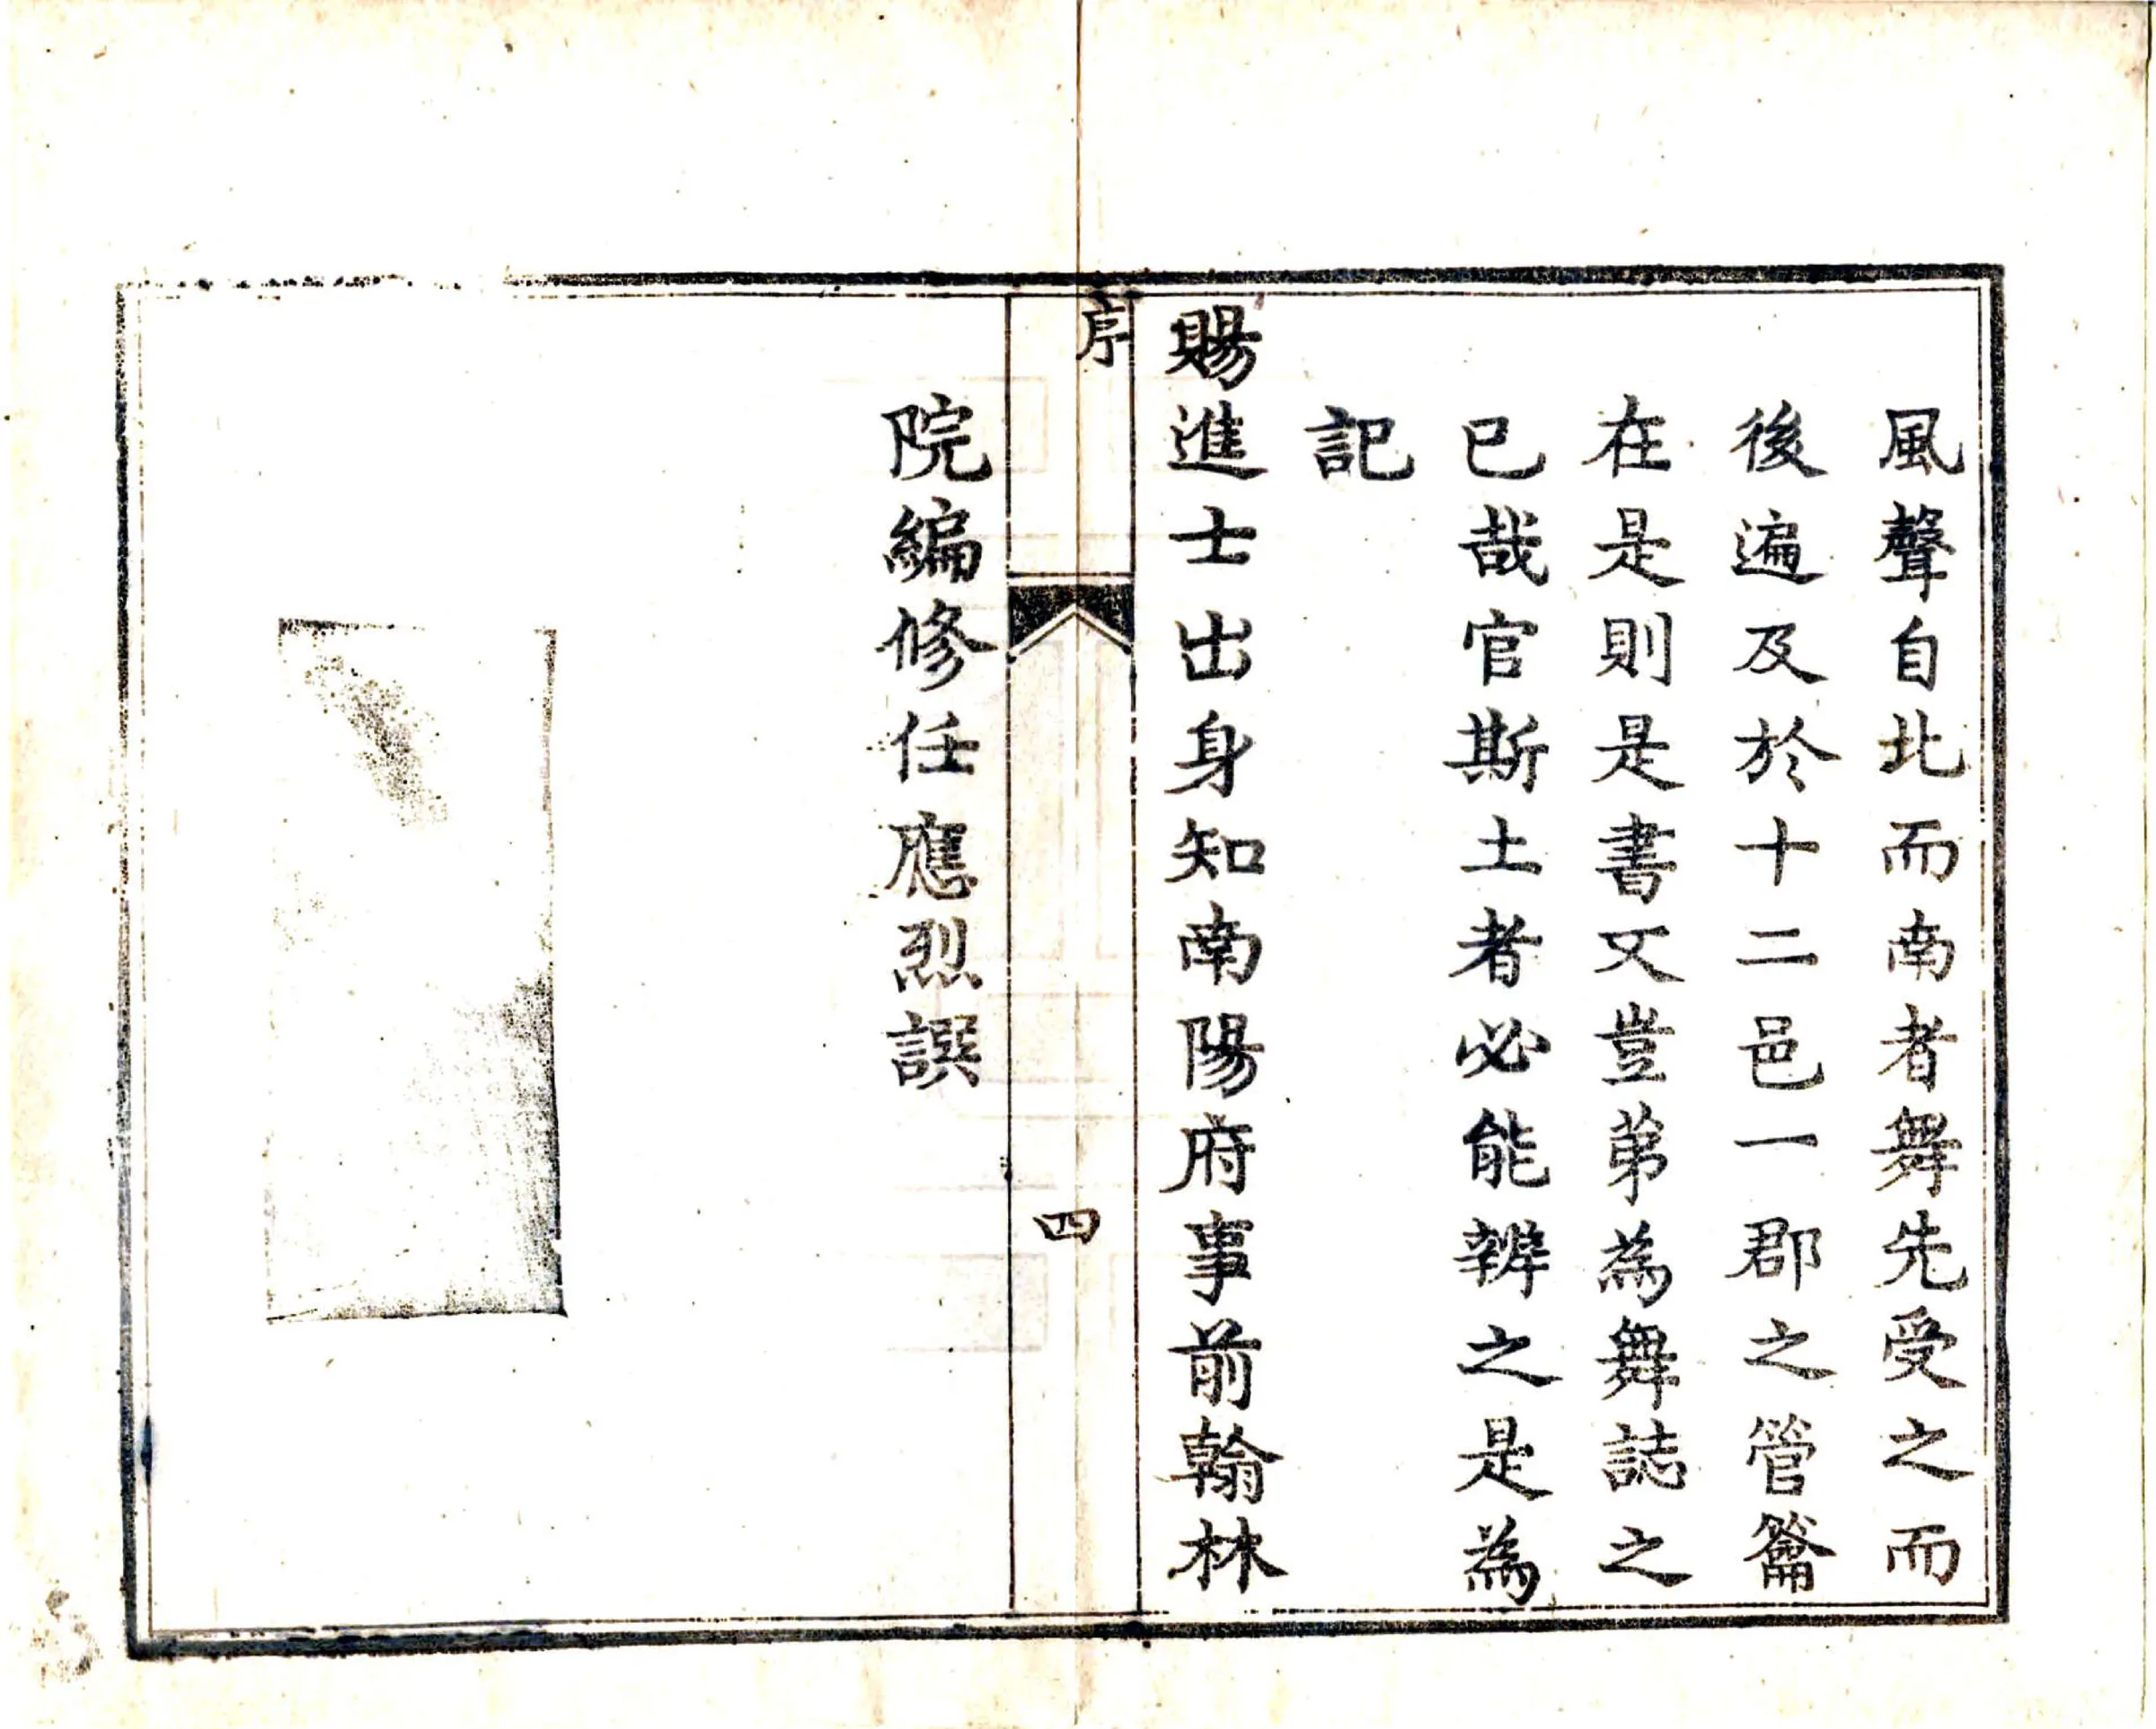 風聲自北而南者舞先受之而
後遍及於十二邑一郡之管籥
在是則是書文豈苐為舞誌之
已哉官斯土者必能辨之是為
記
賜進士出身知南陽府事前翰林
序
四
院編修任應烈譔